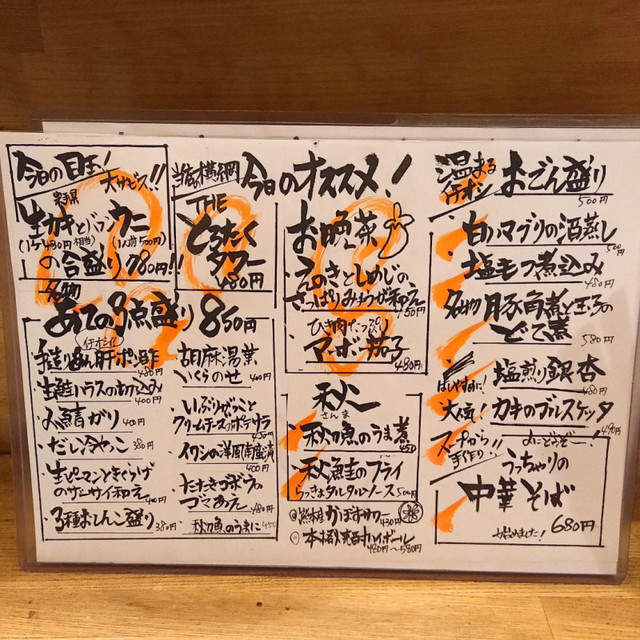 今日の目玉!
大サービス!!
生カキとバフンウニ
(1ケ480円相当)(1人前500円)
の合盛り780円!!
当店横綱
THE
とろたく
タワー
480円
名物
あての3点盛り850円
イチオシ!!
肝ポン酢
480円
生鮭ハラスのあぶり
400円
〆鯖がり 400円
だし冷やっこ 380円
生ピーマンときくらげ
のザーサイ和え
400円
3種おしんこ盛り
380円
胡麻湯葉
いくらのせ 400円
いぶりがっこと
クリームチーズのポテサラ
450円
イワシの洋風南蛮漬
400円
たたきゴボウの
ゴマあえ 480円
秋刀魚のうまに 450円
今日のオススメ!
お晩菜
えのきとしめじの
さっぱりみょうが和え
450円
ひき肉たっぷり
マーボー茄子
480円
秋
さんま
秋刀魚のうま煮
450円
秋鮭のフライ
らっきょタルタルソース 500円
熊本産かぼすサワー
430円
ハイボール
480円〜580円
温まる
イチオシ
おでん盛り
500円
白ハマグリの酒蒸し
500円
塩もつ煮込み
480円
名物 豚角煮と玉子の
とて煮
580円
はじめました!
塩煎り銀杏
480円
大人気! カキのブルスケッタ
490円
スープから
手作り!!
〆にどうぞー!
うっちゃりの
中華そば
始めました! 680円